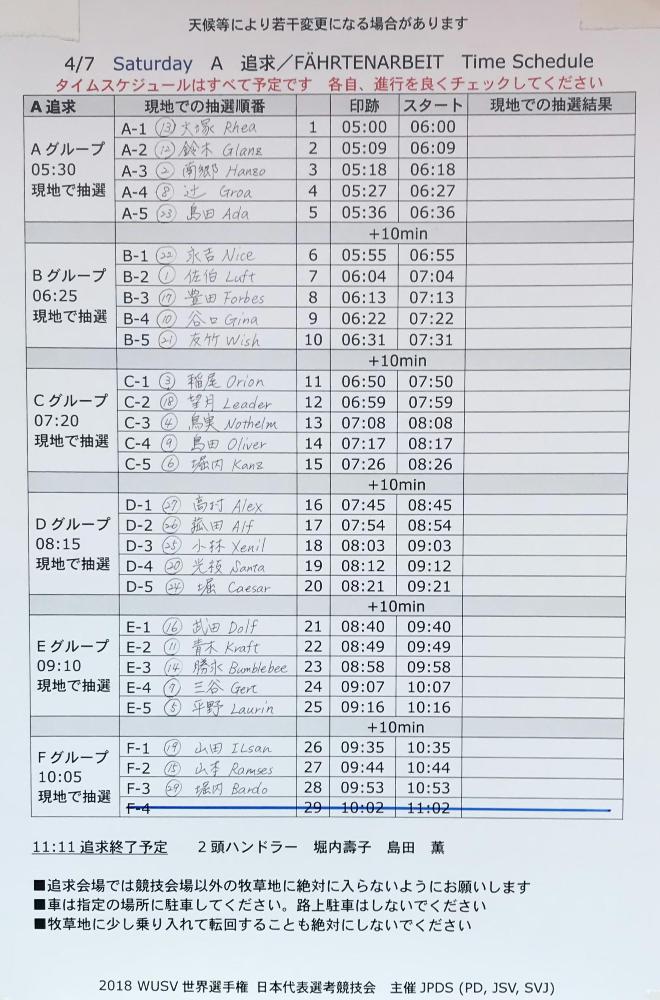 天候等により若干変更になる場合があります
4/7 Saturday A 追求／FÄHRTENARBEIT Time Schedule
タイムスケジュールはすべて予定です 各自、進行を良くチェックしてください
A 追求 現地での抽選順番 印跡 スタート 現地での抽選結果
A グループ
05:30
現地で抽選
A-1 ⑬ 犬塚 Rhea 1 05:00 06:00
A-2 ⑫ 鈴木 Glanz 2 05:09 06:09
A-3 ② 南郷 Hanzo 3 05:18 06:18
A-4 ⑧ 辻 Groa 4 05:27 06:27
A-5 ㉓ 島田 Ada 5 05:36 06:36
+10min
B グループ
06:25
現地で抽選
B-1 ㉒ 永吉 Nice 6 05:55 06:55
B-2 ① 佐伯 Luft 7 06:04 07:04
B-3 ⑰ 豊田 Forbes 8 06:13 07:13
B-4 ⑩ 谷口 Gina 9 06:22 07:22
B-5 ㉑ 友竹 Wish 10 06:31 07:31
+10min
C グループ
07:20
現地で抽選
C-1 ③ 稲尾 Orion 11 06:50 07:50
C-2 ⑱ 望月 Leader 12 06:59 07:59
C-3 ④ 鳥実 Nothelm 13 07:08 08:08
C-4 ⑨ 島田 Oliver 14 07:17 08:17
C-5 ⑥ 堀内 Kanz 15 07:26 08:26
+10min
D グループ
08:15
現地で抽選
D-1 ㉗ 高村 Alex 16 07:45 08:45
D-2 ㉖ 菰田 Alf 17 07:54 08:54
D-3 ㉕ 小林 Xenil 18 08:03 09:03
D-4 ⑳ 光枝 Santa 19 08:12 09:12
D-5 ㉔ 堀 Caesar 20 08:21 09:21
+10min
E グループ
09:10
現地で抽選
E-1 ⑯ 武田 Dolf 21 08:40 09:40
E-2 ⑪ 青木 Kraft 22 08:49 09:49
E-3 ⑭ 勝永 Bumblebee 23 08:58 09:58
E-4 ⑦ 三谷 Gert 24 09:07 10:07
E-5 ⑤ 平野 Laurin 25 09:16 10:16
+10min
F グループ
10:05
現地で抽選
F-1 ⑲ 山田 ILsan 26 09:35 10:35
F-2 ⑮ 山本 Ramses 27 09:44 10:44
F-3 ㉙ 堀内 Bardo 28 09:53 10:53
F-4 29 10:02 11:02
11:11 追求終了予定 2頭ハンドラー 堀内壽子 島田 薫
■追求会場では競技会場以外の牧草地に絶対に入らないようにお願いします
■車は指定の場所に駐車してください。路上駐車はしないでください
■牧草地に少し乗り入れて転回することも絶対にしないでください
2018 WUSV 世界選手権 日本代表選考競技会 主催 JPDS (PD, JSV, SVJ)